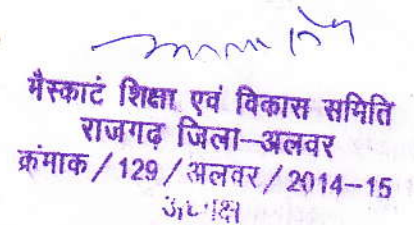 मैस्काटं शिक्षा एवं विकास समिति
राजगढ़ जिला-अलवर
क्रंमाक / 129 / अलवर / 2014-15